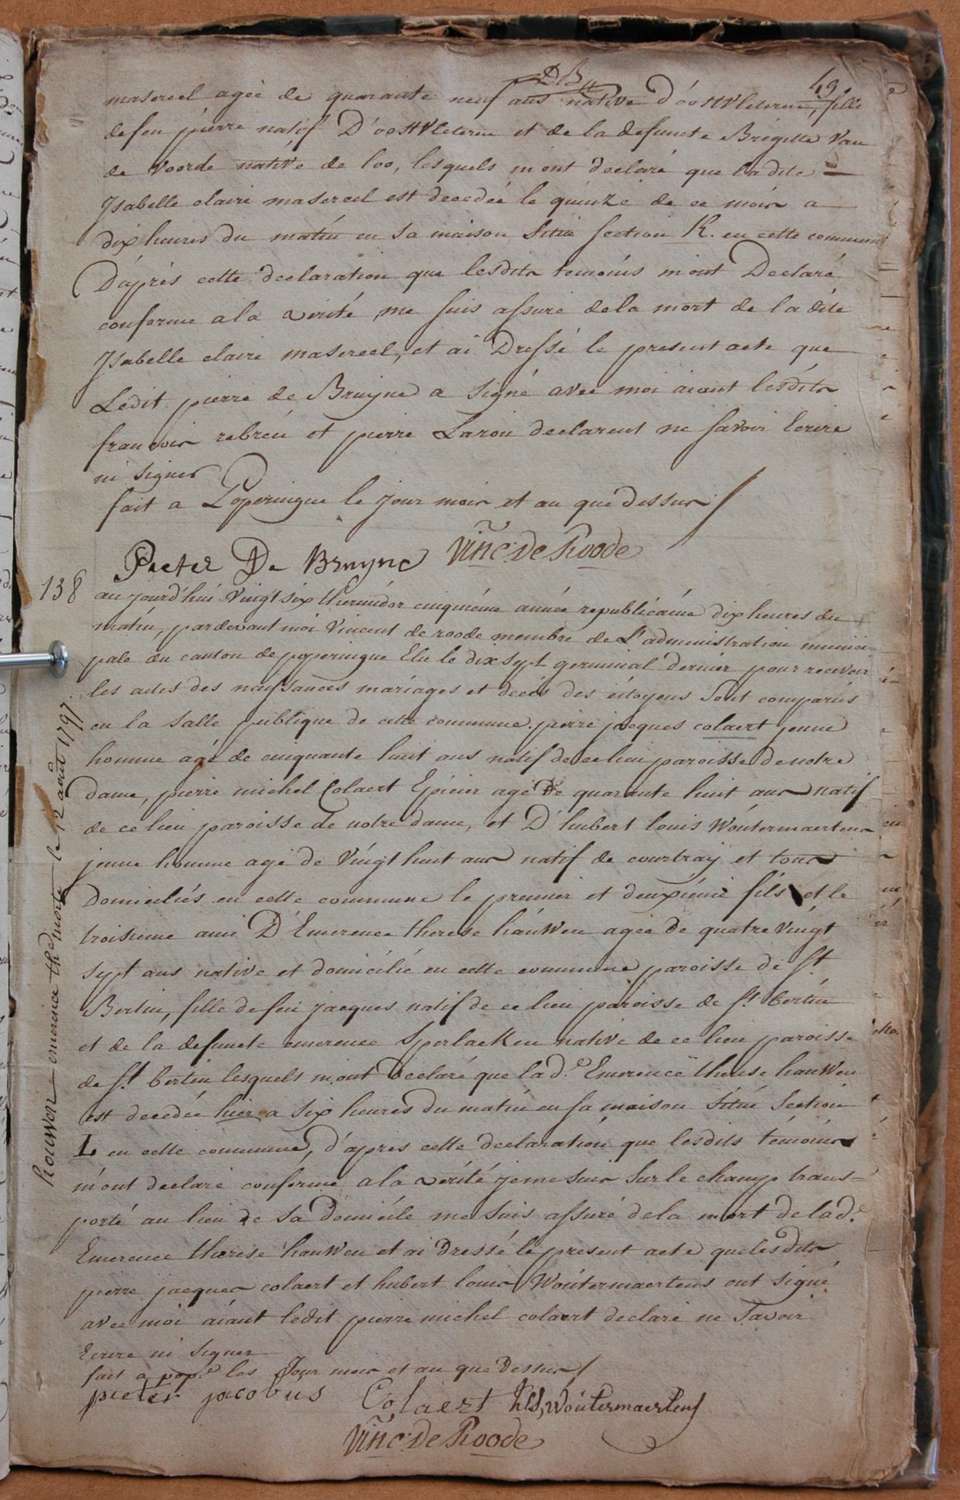 DB
49
masereel agée de quarante neuf ans native D'oostvleteren, fille
de feu pierre natif D'oostvleteren et de la defuncte Brigitte Van
de Voorde native de loo, lesquels m'ont déclaré que la dite
Isabelle claire masereel est decedée le quinze de ce mois a
dix heures du matin en sa maison Située section K. en cette commune
D'après cette declaration que lesdits temoins m'ont Declaré
conforme a la vérité, me suis assuré de la mort de la dite
Isabelle claire masereel, et ai Dressé le present acte que
Ledit pierre de Bruyne a signé avec moi aiant lesdits
francois rebreu et pierre Larou declarent ne savoir Ecrire
ni signer
fait a Poperingue le jour mois et an que dessus
Pieter De Bruyne Vinc. De Roode
138
aujourd'hui Vingt six thermidor cinquième année republicaine dix heures du
matin, pardevant moi Vincent de roode membre de L'administration munici-
pale du canton de poperingue Elu le dix sept germinal dernier pour recevoir
les actes des naissances mariages et décès des citoyens sont comparus
en la salle publique de cette commune. pierre jacques colaert jeune
homme agé de cinquante huit ans natif de ce lieu paroisse de notre
dame, pierre michel Colaert Epicier agé de quarante huit ans natif
de ce lieu paroisse de notre dame, et D'hubert louis Woutermaertens
jeune homme agé de Vingt huit ans natif de courtray et tous
Domiciliés en cette commune le premier et deuxième fils et le
troisieme ami D'Emerence therese hauwen agée de quatre vingt
sept ans native et domiciliée en cette commune paroisse de St.
Bertin, fille de feu jacques natif de ce lieu paroisse de st. bertin
et de la defuncte emerence Sperlacken native de ce lieu paroisse
de St. bertin lesquels m'ont Déclaré que lad.e Emerence therese hauwen
est decedée hier a six heures du matin en sa maison Située Section
L en cette commune, d'apres cette declaration que lesdits témoins
m'ont declaré conforme a la vérité je me suis sur le champ trans-
porté au lieu de sa Domicile me suis assuré de la mort de lad.e
Emerence therese hauwen et ai Dressé le present acte que lesdits
pierre jacques colaert et hubert louis Woutermaertens ont signé
avec moi aiant ledit pierre michel colaert declaré ne Savoir
Ecrire ni signer
fait a pop.e les Jour mois et an que Dessus
pieter jacobus Colaert hLs, Woutermaertens
Vinc. De Roode
houwen emerence th morte le 12 août 1797.